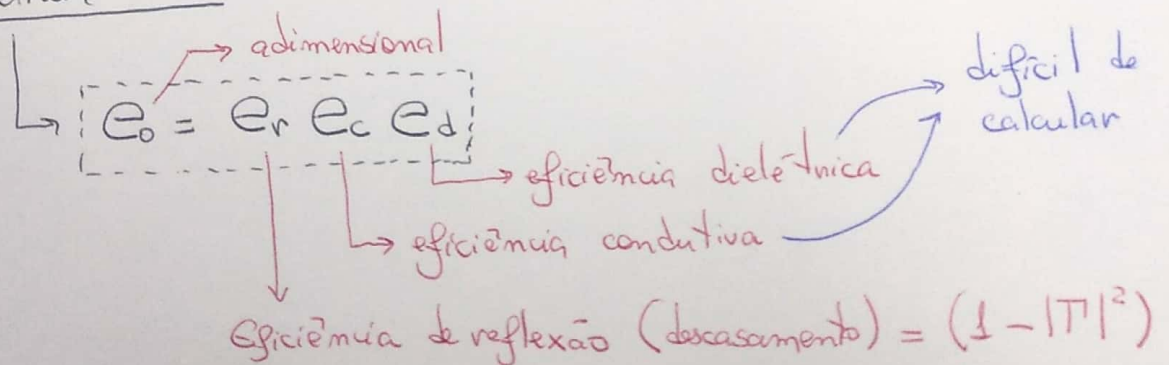 adimensional
e₀ = eᵣ e_c e_d
difícil de
calcular
eficiência dielétrica
eficiência condutiva
Eficiência de reflexão (descasamento) = (1 - |Γ|²)